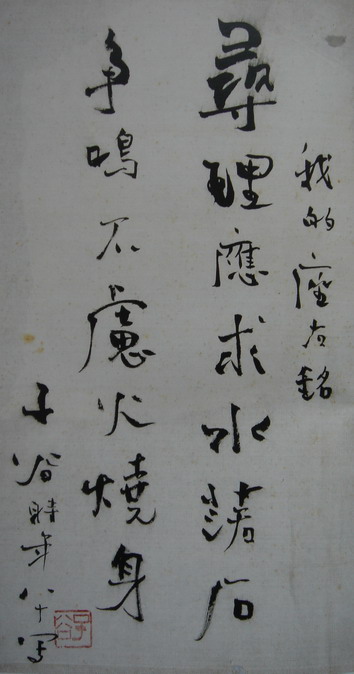 我的座右銘
尋理應求水落石
争鳴不慮火燒身
子谷時年八十写
子谷